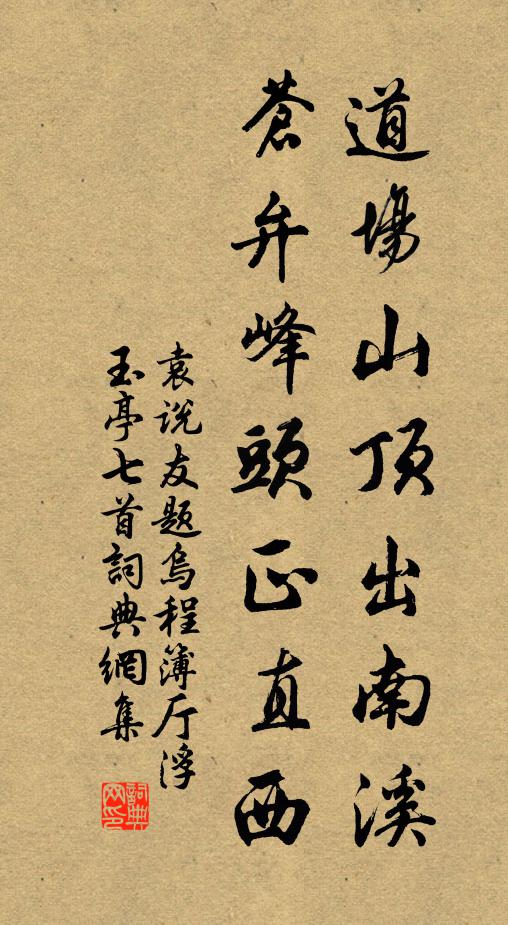 道場山頂出南溪
蒼弁峰頭正直西
袁说友题烏程簿厅浮
玉亭七首詞典網集
詞典
网印